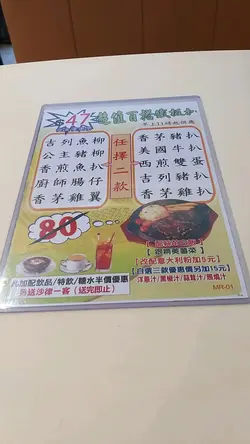 $47 超值百搭鐵板扒
早上11時起供應
任擇二款
吉列魚柳
公主豬柳
香煎魚扒
廚師腸仔
香茅雞翼
香茅豬扒
美國牛扒
西煎雙蛋
吉列豬扒
香茅雞扒
80
【跟英蘭菜】
【改配意大利粉加5元】
【自選三款優惠價另加15元】
洋蔥汁/黑椒汁/蒜茸汁/燒汁
凡加配飲品/特飲/糖水半價優惠
另送沙律一客 (送完即止)
MR-01